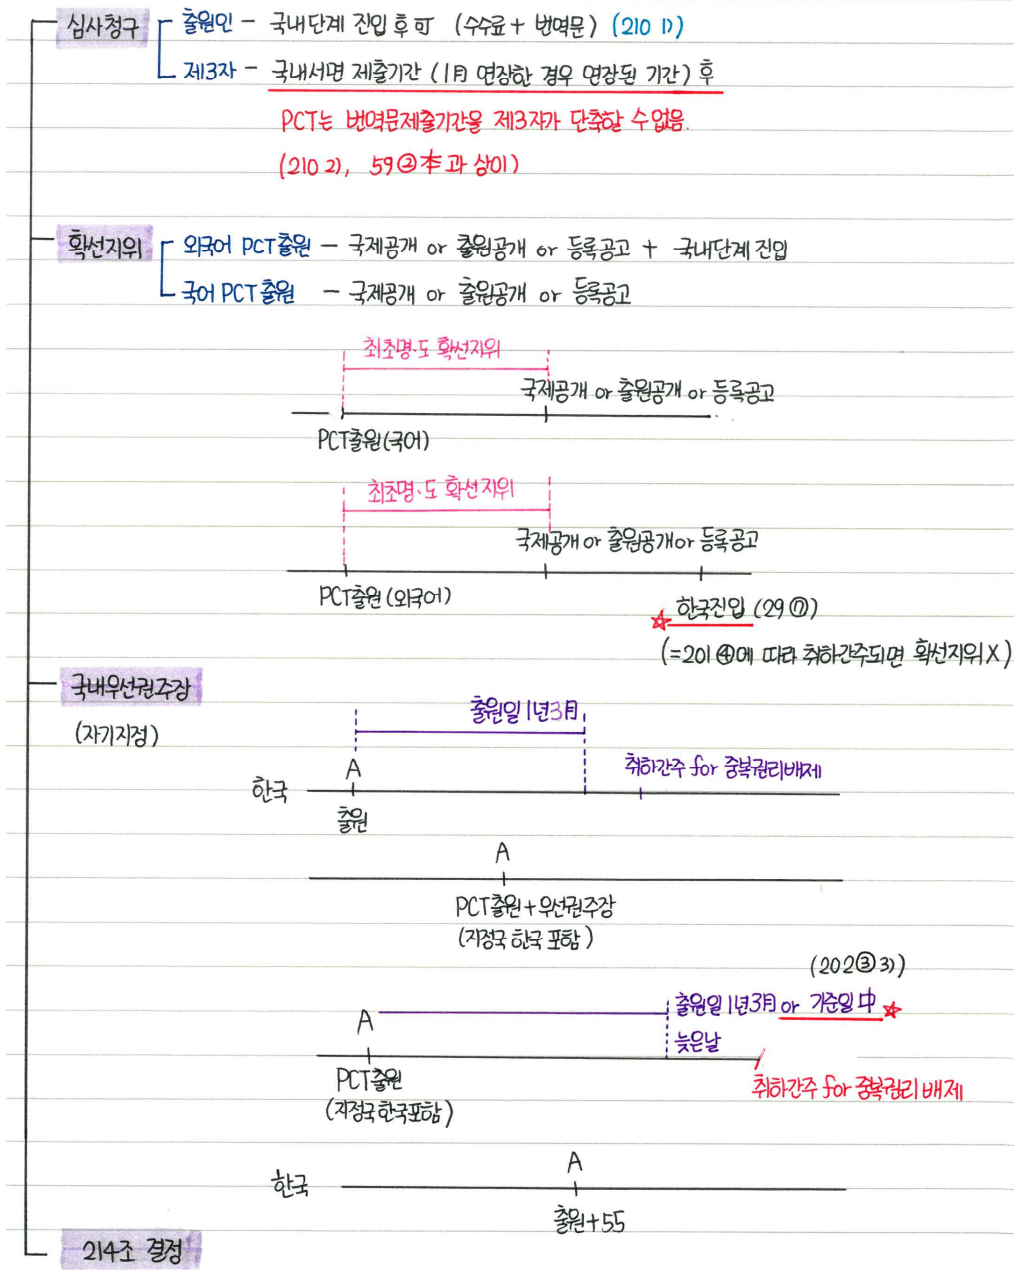 심사청구 출원인 - 국내단계 진입 후 可 (수수료 + 번역문) (210 1))
제3자 - 국내서면 제출기간 (1月 연장한 경우 연장된 기간) 후
PCT는 번역문제출기간을 제3자가 단축할 수 없음.
(210 2), 59②本과 상이)
확선지위 외국어 PCT출원 - 국제공개 or 출원공개 or 등록공고 + 국내단계 진입
국어 PCT출원 - 국제공개 or 출원공개 or 등록공고
최초명·도 확선지위
국제공개 or 출원공개 or 등록공고
PCT출원(국어)
최초명·도 확선지위
국제공개 or 출원공개 or 등록공고
PCT출원(외국어)
☆ 한국진입 (29⑦)
(=201④에 따라 취하간주되면 확선지위X)
국내우선권주장
(자기지정)
출원일 1년3月
A
취하간주 for 중복권리배제
한국
출원
A
PCT출원+우선권주장
(지정국 한국 포함)
(202③3))
A
출원일 1년3月 or 기준일 中 ☆
늦은날
PCT출원
(지정국한국포함)
취하간주 for 중복권리 배제
A
한국
출원+55
214조 결정